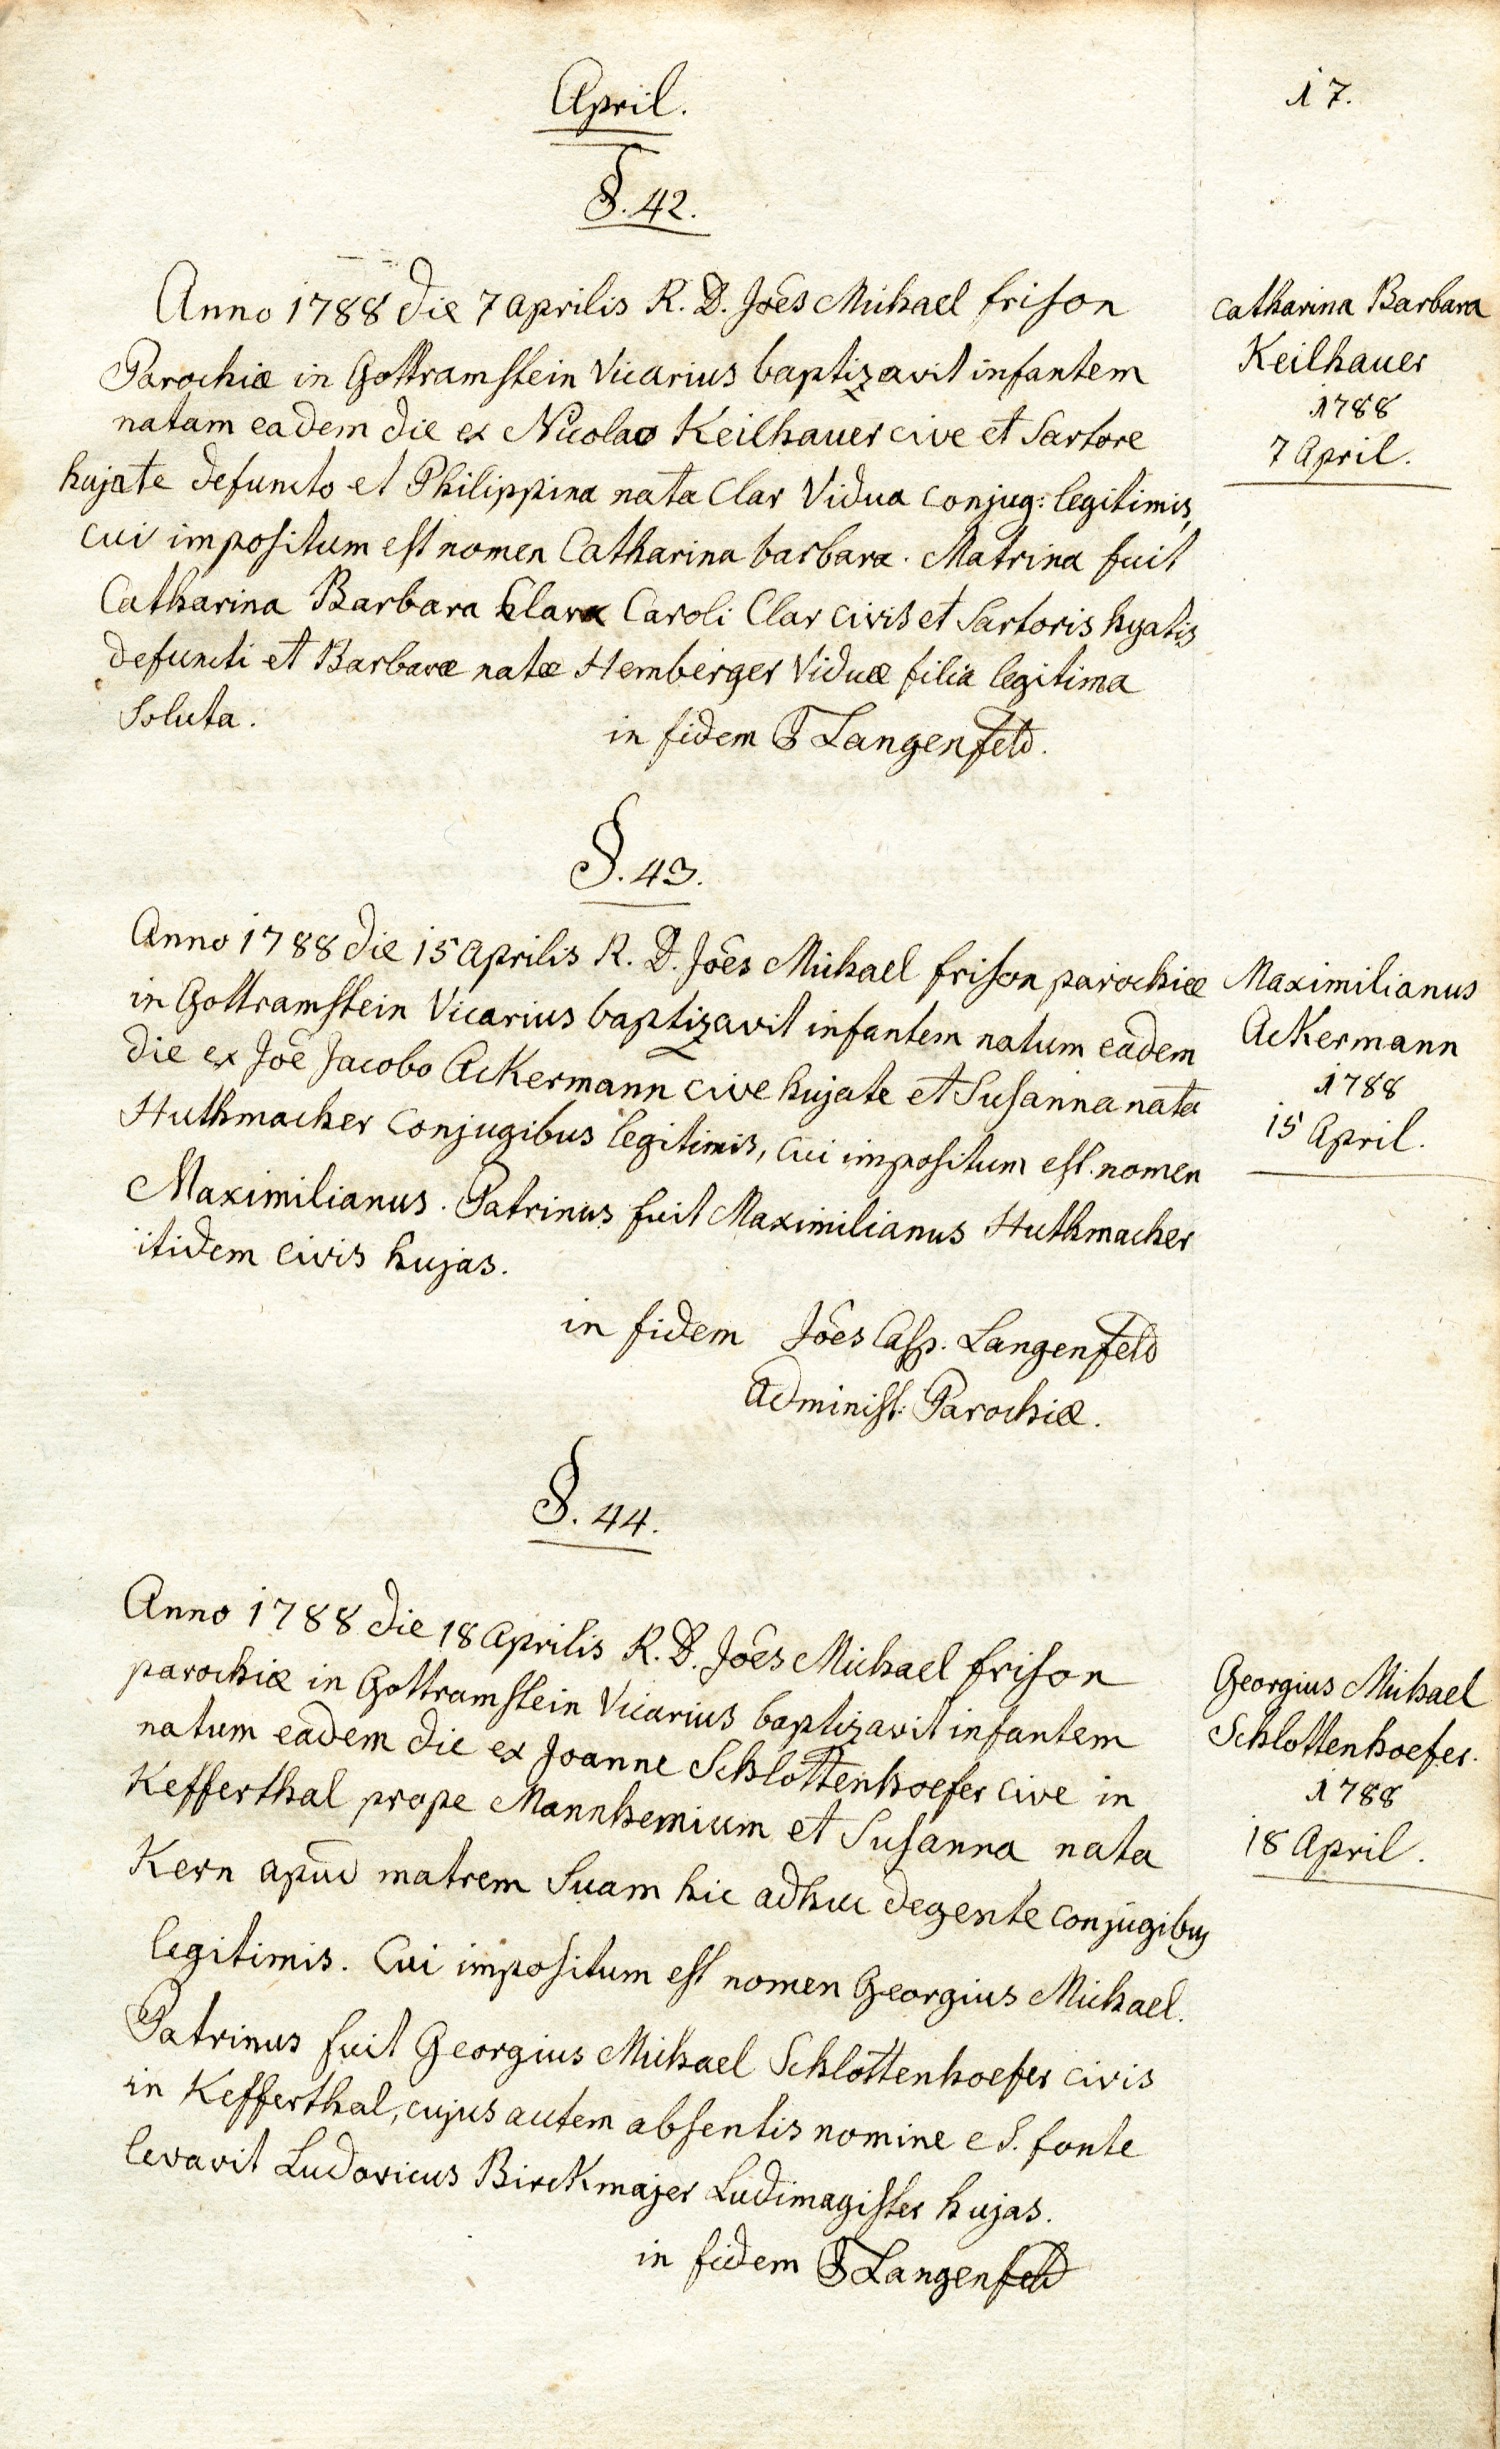 April.
17.
§. 42.
Anno 1788 die 7 aprilis R. D. Joẽs Michael frison
Parochiæ in Gottramstein Vicarius baptizavit infantem
natam eadem die ex Nicolao Keilhauer cive et Sartore
hujate defuncto et Philippina nata Clar Vidua conjug: legitimis,
cui impositum est nomen Catharina barbara. Matrina fuit
Catharina Barbara Clara Caroli Clar civis et Sartoris hyatis
defuncti et Barbaræ natæ Hemberger Viduæ filia legitima
soluta.
in fidem J Langenfeld.
Catharina Barbara
Keilhauer
1788
7 April.
§. 43.
Anno 1788 die 15 aprilis R. D. Joẽs Michael frison parochiæ
in Gottramstein Vicarius baptizavit infantem natum eadem
die ex Joẽ Jacobo Ackermann cive hujate et Susanna nata
Huthmacher conjugibus legitimis, cui impositum est nomen
Maximilianus. Patrinus fuit Maximilianus Huthmacher
itidem civis hujas.
in fidem Joẽs Casp. Langenfeld
Administ: Parochiæ.
Maximilianus
Ackermann
1788
15 April.
§. 44.
Anno 1788 die 18 aprilis R. D. Joẽs Michael frison
parochiæ in Gottramstein Vicarius baptizavit infantem
natum eadem die ex Joanne Schlottenhoefer cive in
Kefferthal prope Mannhemium et Susanna nata
Kern apud matrem Suam hic adhuc degente conjugibus
legitimis. Cui impositum est nomen Georgius Michael.
Patrinus fuit Georgius Michael Schlottenhoefer civis
in Kefferthal, cujus autem absentis nomine e S. fonte
levavit Ludovicus Birckmajer Ludimagister hujas.
in fidem J Langenfeld
Georgius Michael
Schlottenhoefer.
1788
18 April.